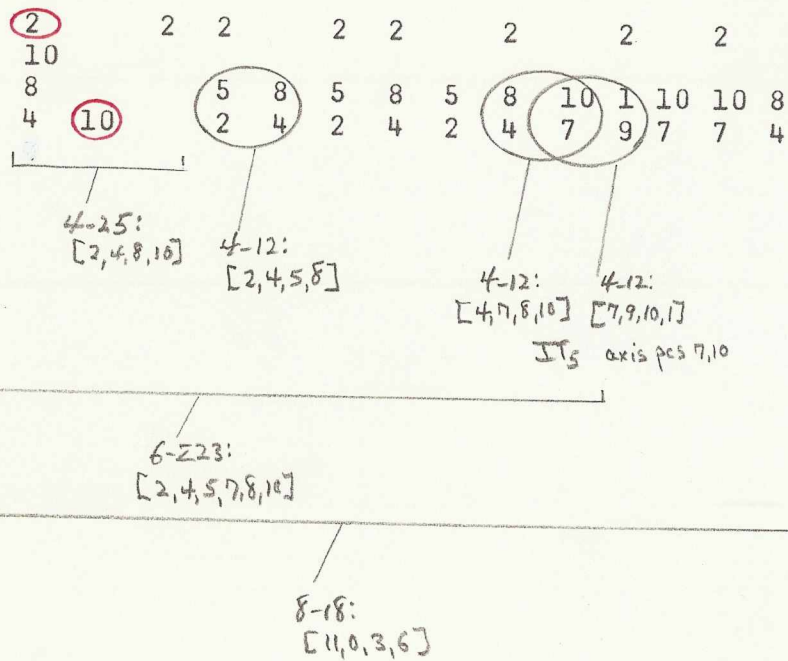 2 2 2 2 2 2 2 2
10
8 5 8 5 8 5 8 10 1 10 10 8
4 10 2 4 2 4 2 4 7 9 7 7 4
4-25:
[2,4,8,10]
4-12:
[2,4,5,8]
4-12:
[4,7,8,10]
4-12:
[7,9,10,1]
IT5 axis pcs 7,10
6-Z23:
[2,4,5,7,8,10]
8-18:
[11,0,3,6]